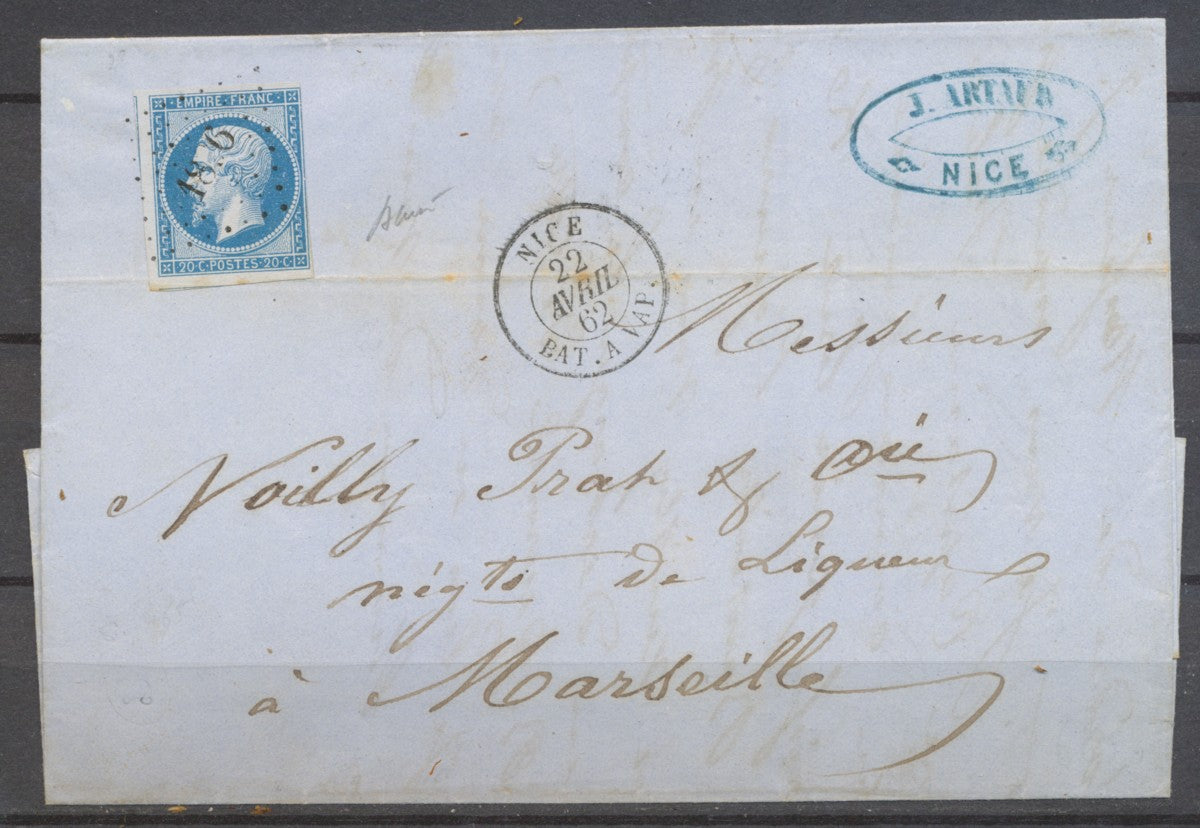 EMPIRE FRANC
20 C·POSTES·20 C
J. ARTAUD
NICE
NICE
22
AVRIL
62
BAT. A VAP.
Messieurs
Noilly Prat & Cie
négts de Liqueur
à Marseille